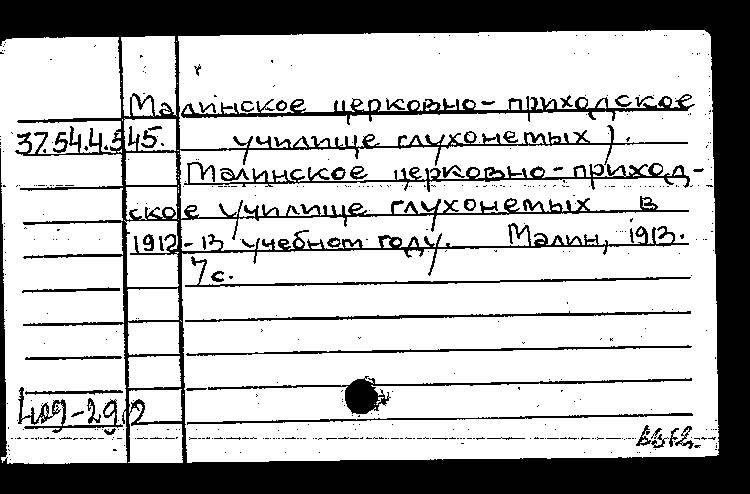 Малинское церковно-приходское
37.54.4.545. училище глухонемых).
Малинское церковно-приход-
ское училище глухонемых в
1912-13 учебном году. Малин, 1913.
7с.
409-29/2